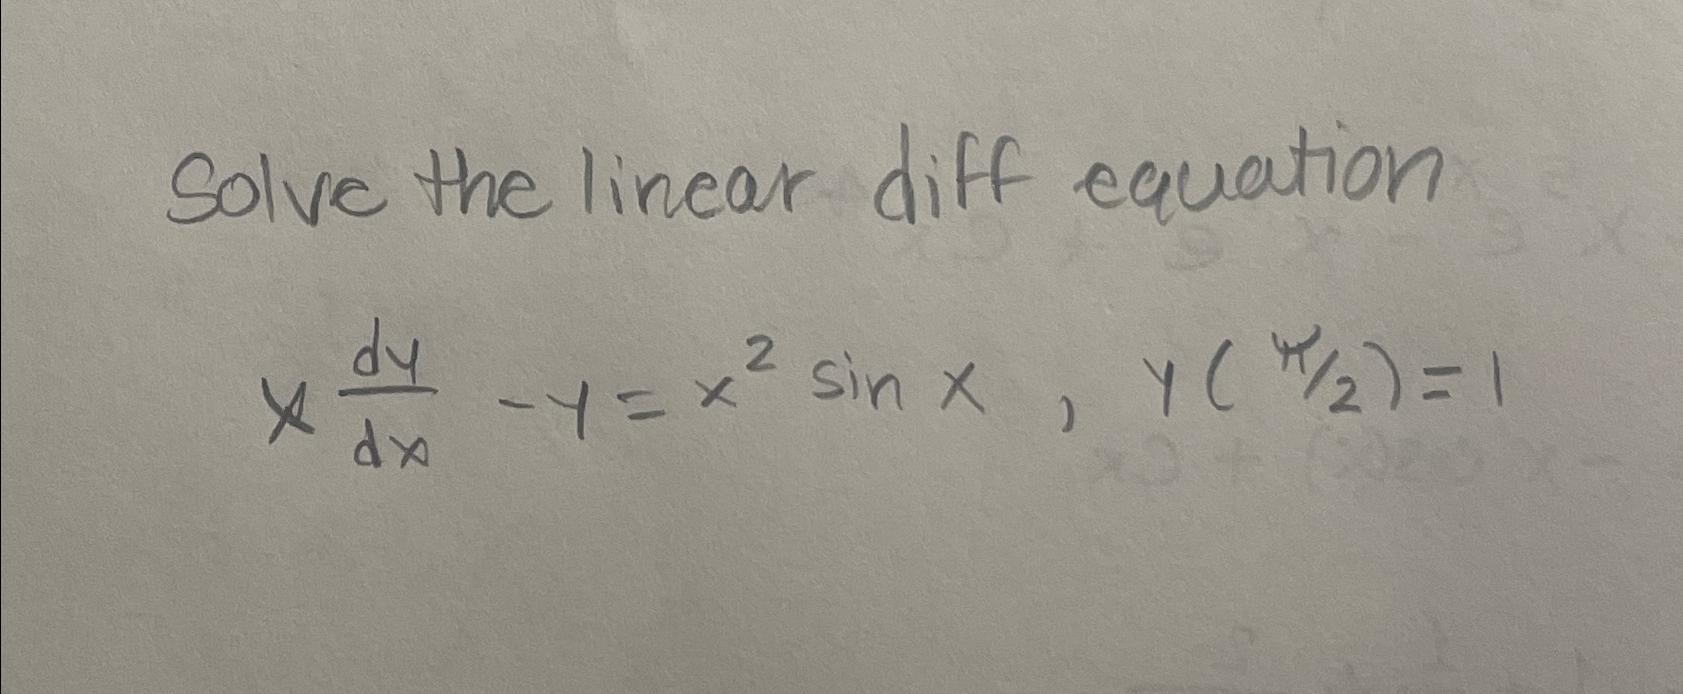 Solve the linear diff equation
x dy/dx - y = x² sin x , y(π/2) = 1